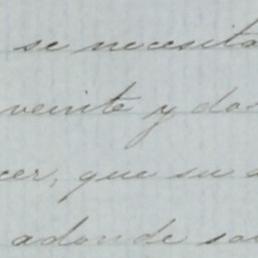 se necesita
veinte y dos
cer, que su
adonde